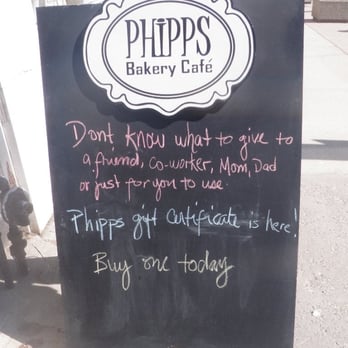 PHIPPS
Bakery Café
Dont know what to give to
a friend, co-worker, Mom, Dad
or just for you to use.
Phipps gift certificate is here!
Buy one today